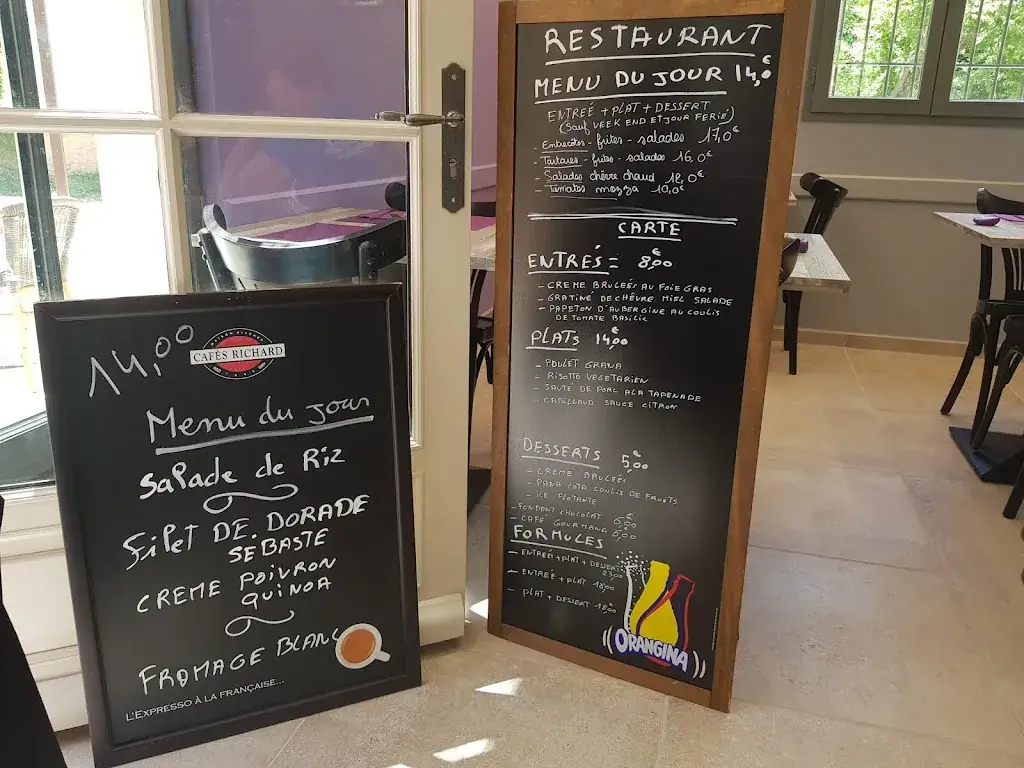 14,00
CAFÉS RICHARD
Menu du jour
Salade de Riz
Filet DE DORADE
SEBASTE
CREME POIVRON
QUINOA
FROMAGE BLANC
L'EXPRESSO À LA FRANÇAISE...
RESTAURANT
MENU DU JOUR 14,0€
ENTREÉ + PLAT + DESSERT
(Sauf VEEK END ET JOUR FERIÉ)
- Entrecôtes - frites - salades 17,0€
- Tartares - frites - salades 16,0€
- Salades chèvre chaud 12,0€
- Tomates mozza 10,0€
CARTE
ENTRÉS = 8,00€
- CREME BRULEÉS AU FOIE GRAS
- GRATINÉ DE CHÈVRE MIEL SALADE
- PAPETON D'AUBERGINE AU COULIS
DE TOMATE BASILIC
PLATS 14,00€
- POULET GRANA
- RISOTTO VEGETARIEN
- SAUTÉ DE PORC ALA TAPENADE
- CABILLAUD SAUCE CITRON
DESSERTS 5,00€
- CREME BRULEÉS
- PANA COTA COULIS DE FRUITS
- ILE FLOTANTE
- FONDANT CHOCOLAT 6,00€
- CAFÉ GOURMAND 6,00€
FORMULES
- ENTREÉ + PLAT + DESSERT
- ENTREÉ + PLAT 18,00
- PLAT + DESSERT 18,00€
ORANGINA